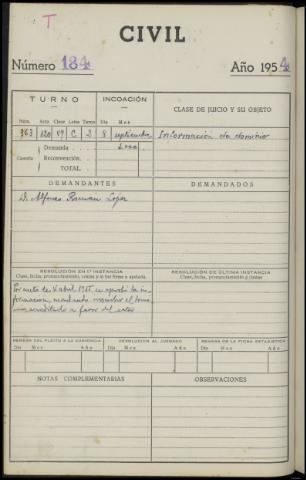 T
CIVIL
Número 184 Año 1954
TURNO INCOACIÓN CLASE DE JUICIO Y SU OBJETO
Núm. Año Clase Letra Turno Día Mes
C 2 8 septiembre Información de dominio
Cuantía Demanda
Reconvención
TOTAL
DEMANDANTES DEMANDADOS
D. Alfonso Roman Lopez
RESOLUCIÓN EN 1ª INSTANCIA RESOLUCIÓN DE ÚLTIMA INSTANCIA
Clase, fecha, pronunciamiento, costas y si fue firme o apelada Clase, fecha, pronunciamiento y costas
Por auto de abril 1955 se aprobó la in-
formación, mandando inscribir el domi-
nio acreditado a favor del actor
REMESA DEL PLEITO A LA AUDIENCIA DEVOLUCIÓN AL JUZGADO REMESA DE LA FICHA ESTADÍSTICA
Día Mes Año Día Mes Año Día Mes Año
NOTAS COMPLEMENTARIAS OBSERVACIONES